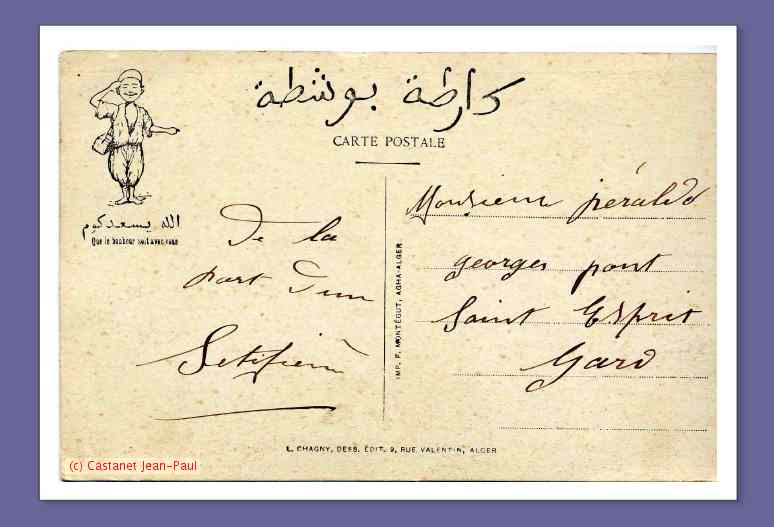 كارطة بوسْطة
CARTE POSTALE
الله يسعدكوم
Que le bonheur soit avec vous
De la
part d'un
Setifien
IMP. F. MONTÉGUT, AGHA-ALGER
Monsieur péraldo
georges pont
Saint Esprit
Gard
L. CHAGNY, DESS. ÉDIT. 9, RUE VALENTIN, ALGER
(c) Castanet Jean-Paul